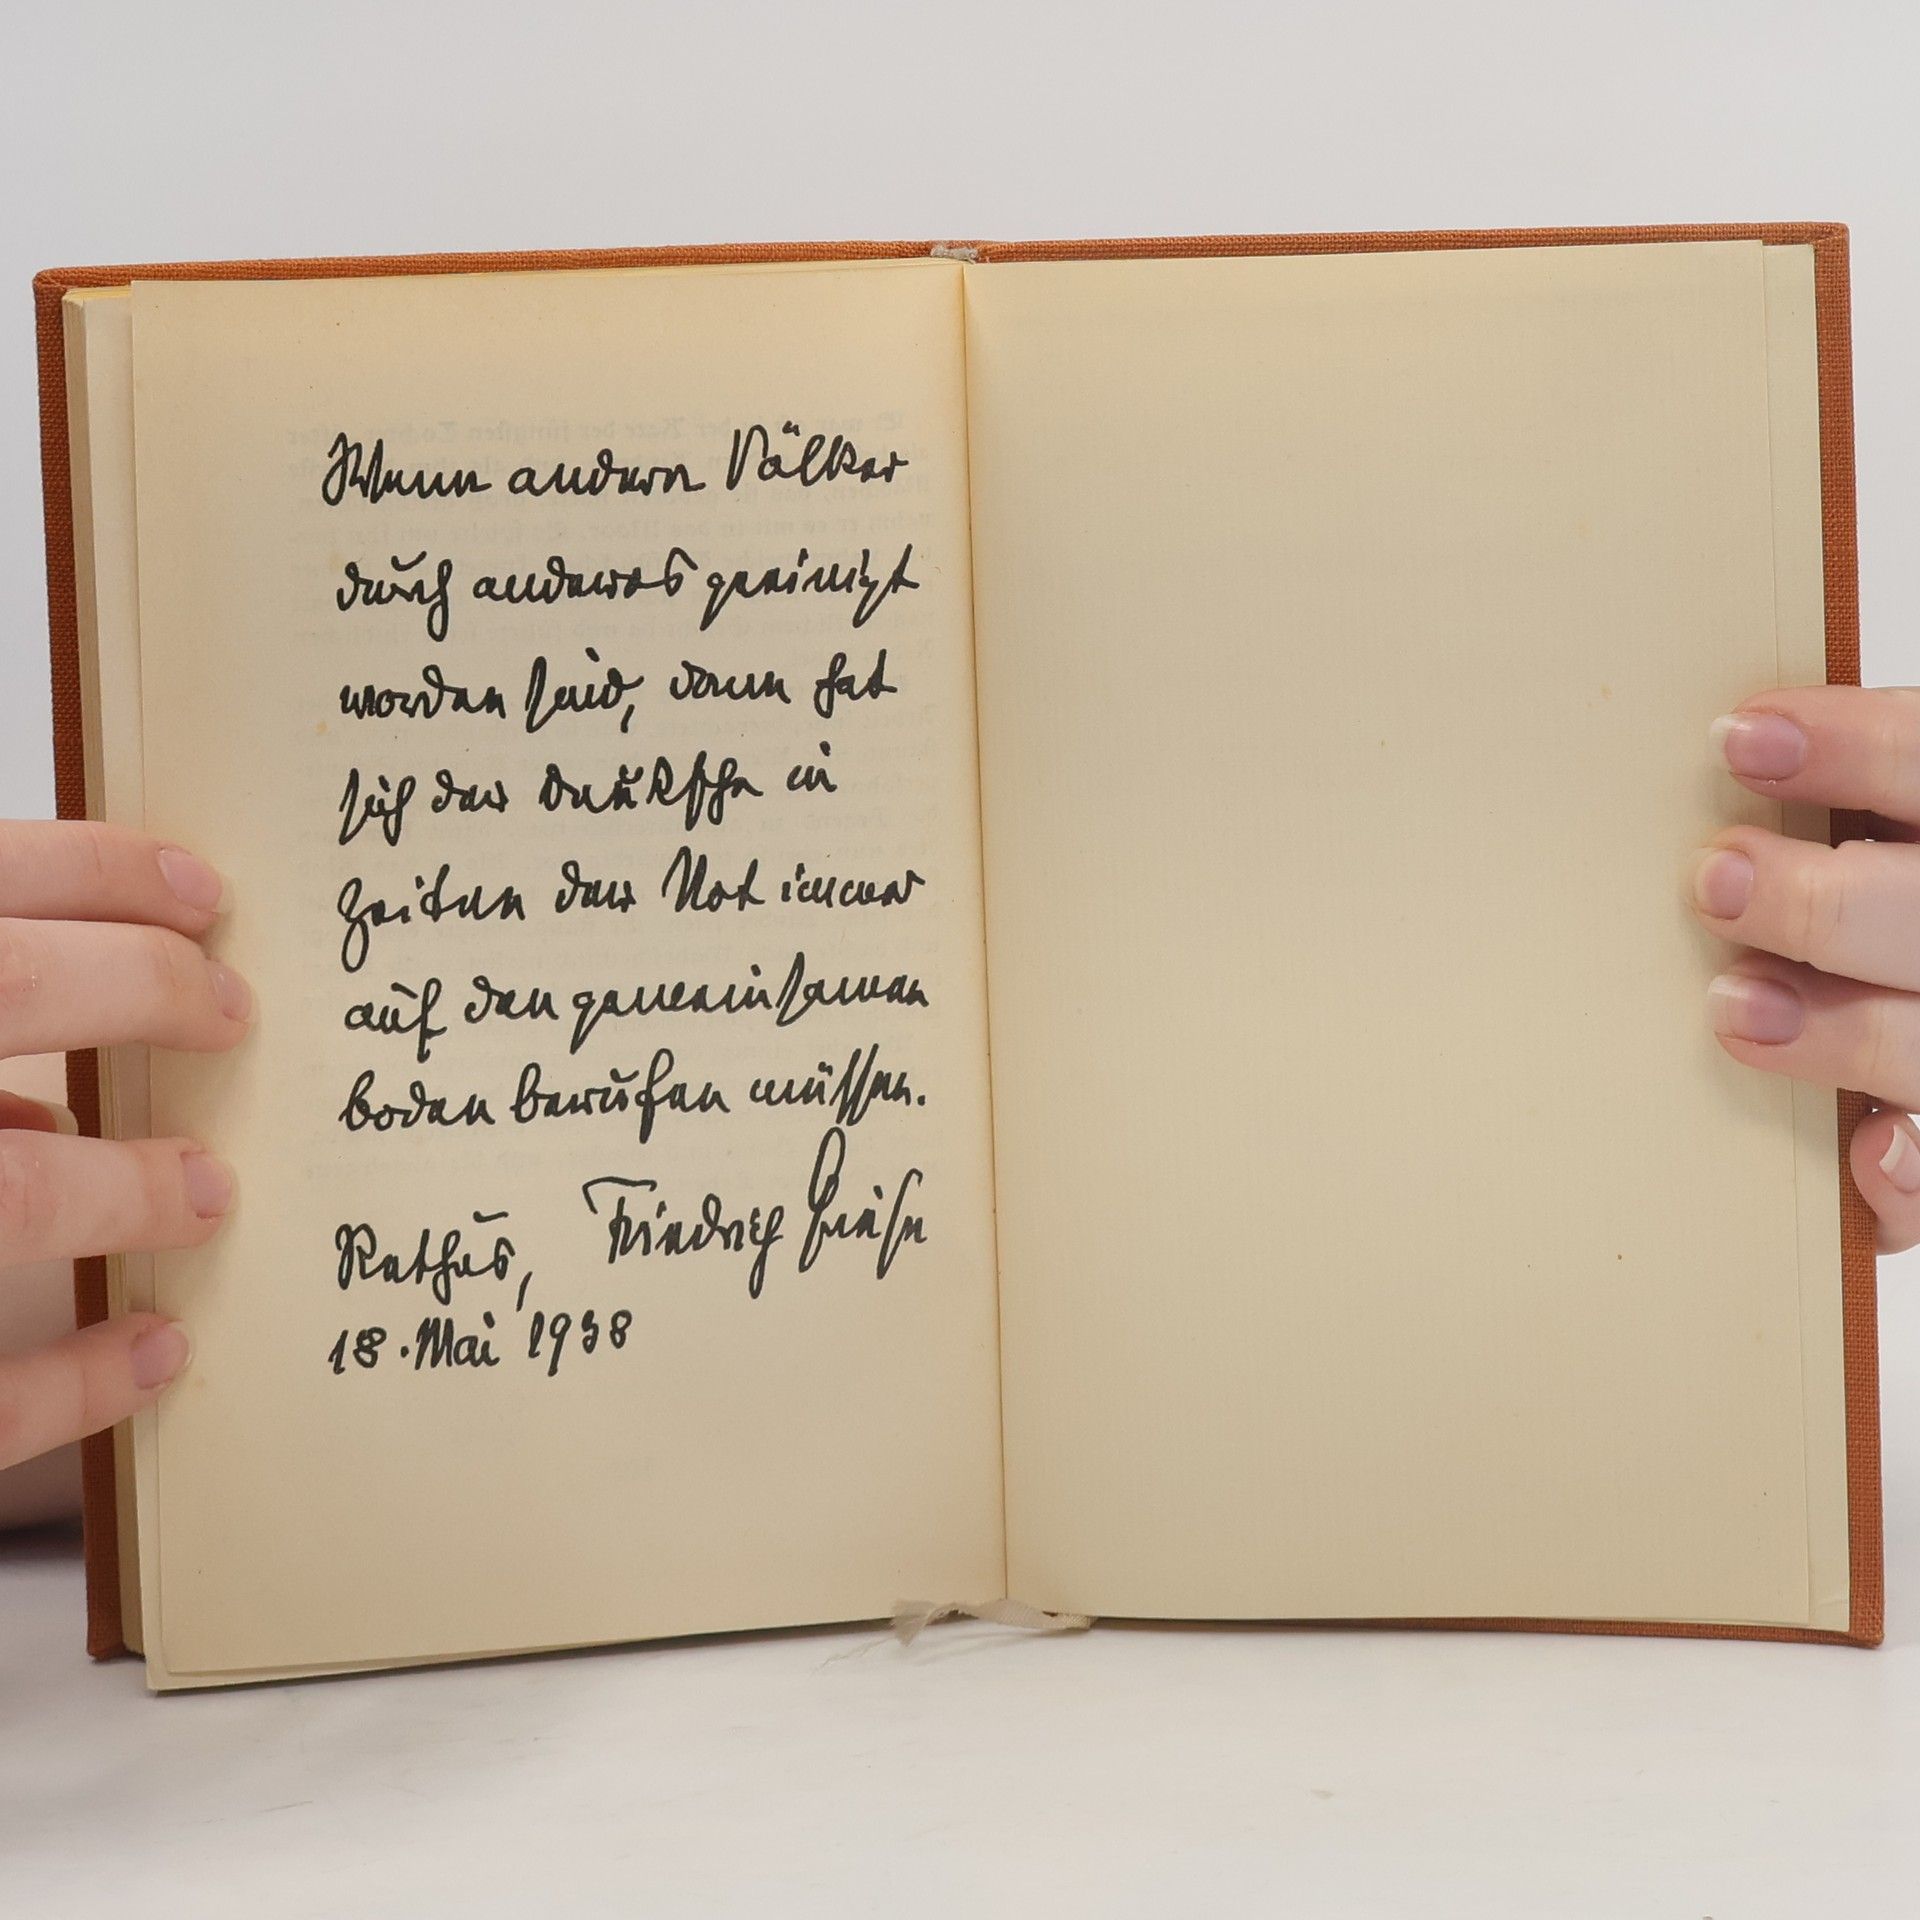 Wenn andere Völker
durch anderes geeinigt
worden sind, dann hat
sich der Deutsche in
Zeiten der Not immer
auf den gemeinsamen
boden berufen müssen.
Friedrich Griese
Rethus,
18. Mai 1938